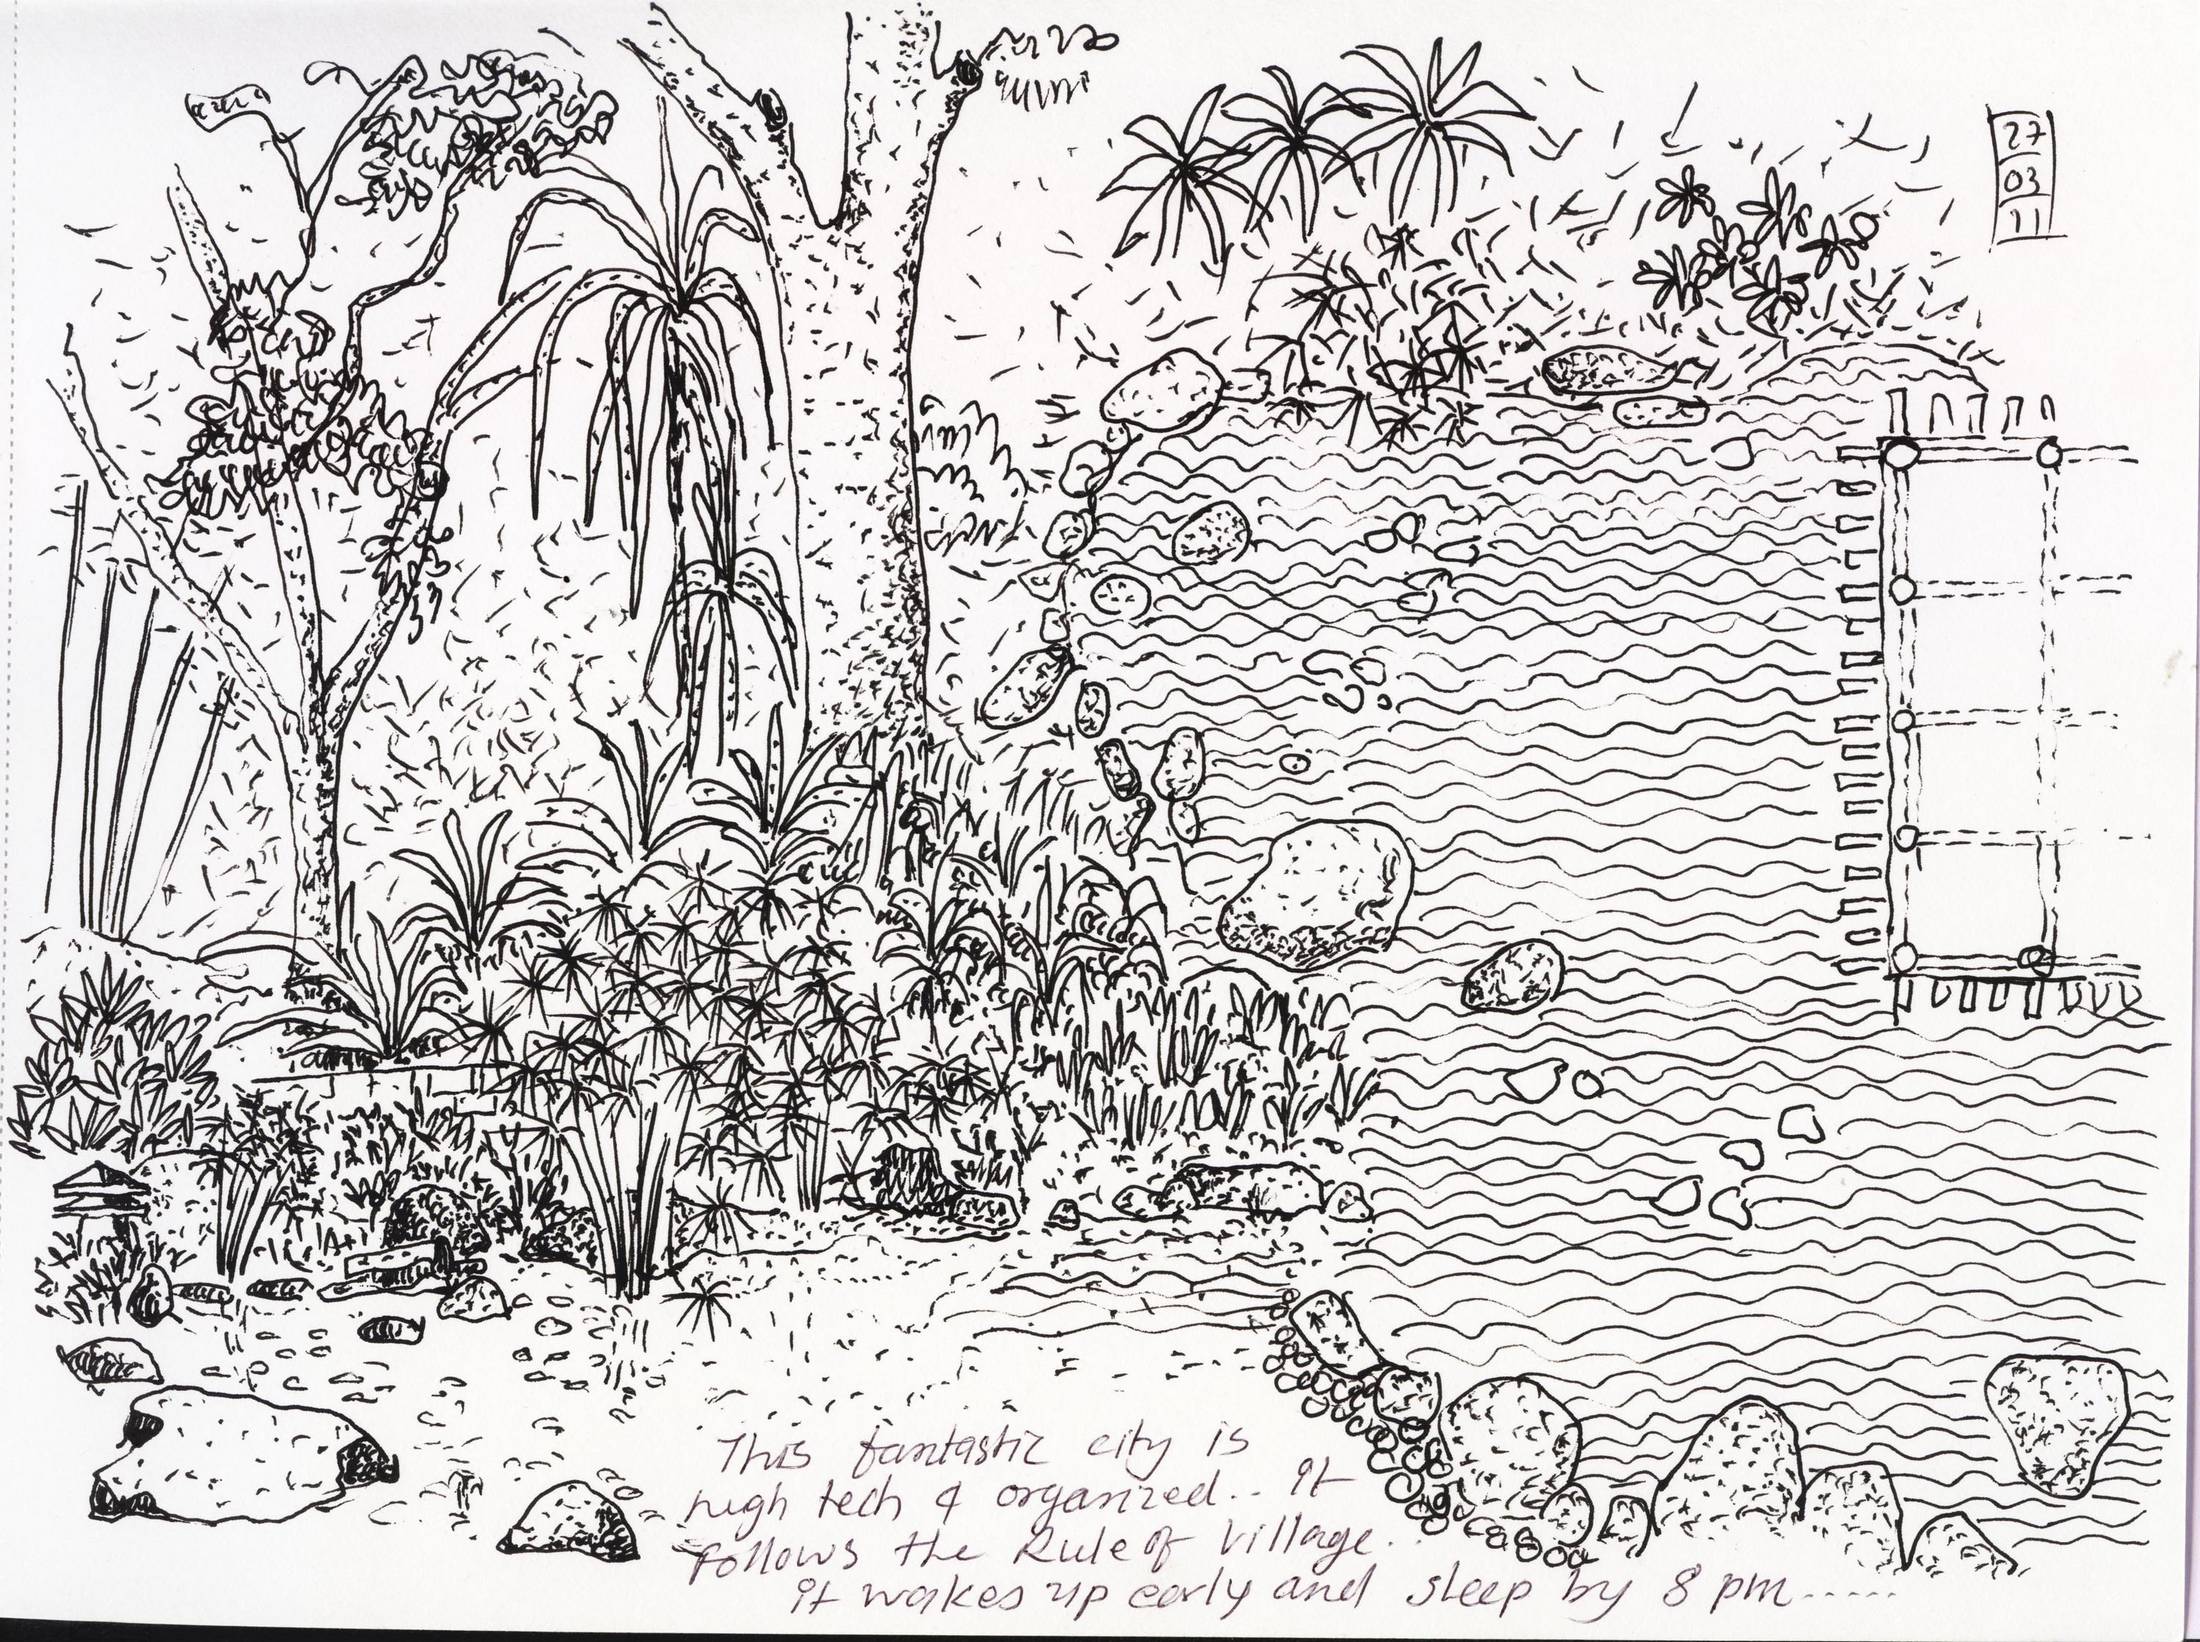 27
03
11
This fantastic city is
high tech & organized.. it
follows the Rule of Village..
it wakes up early and sleep by 8 pm.....